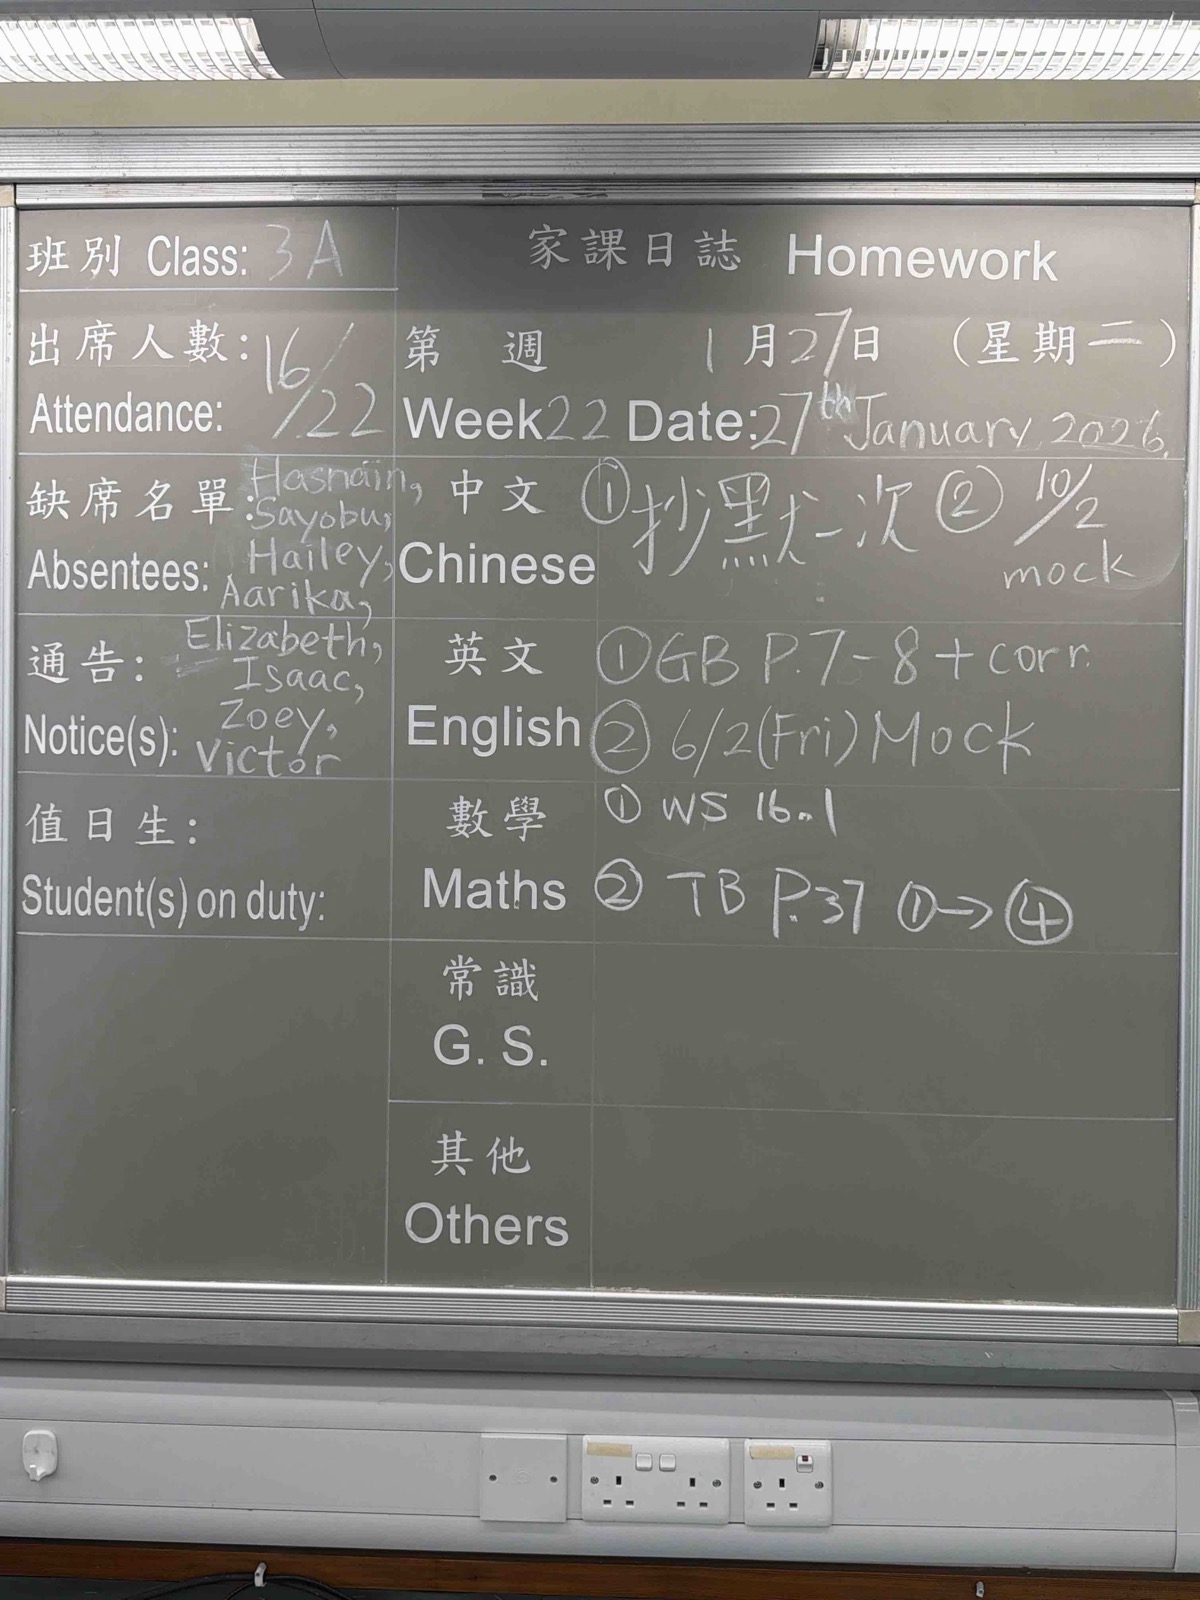 班別 Class: 3A
家課日誌 Homework
出席人數: 16/22
Attendance:
第 週 1月27日 (星期二)
Week22 Date:27th January 2026.
缺席名單: Hasnain,
Sayobu,
Absentees: Hailey,
Aarika,
Elizabeth,
Isaac,
Zoey,
Victor
中文 ①抄默一次 ② 10/2
Chinese mock
通告:
Notice(s):
英文 ①GB P.7-8+corr.
English ② 6/2(Fri) Mock
值日生:
Student(s) on duty:
數學 ① WS 16.1
Maths ② TB P.37 ①→④
常識
G. S.
其他
Others